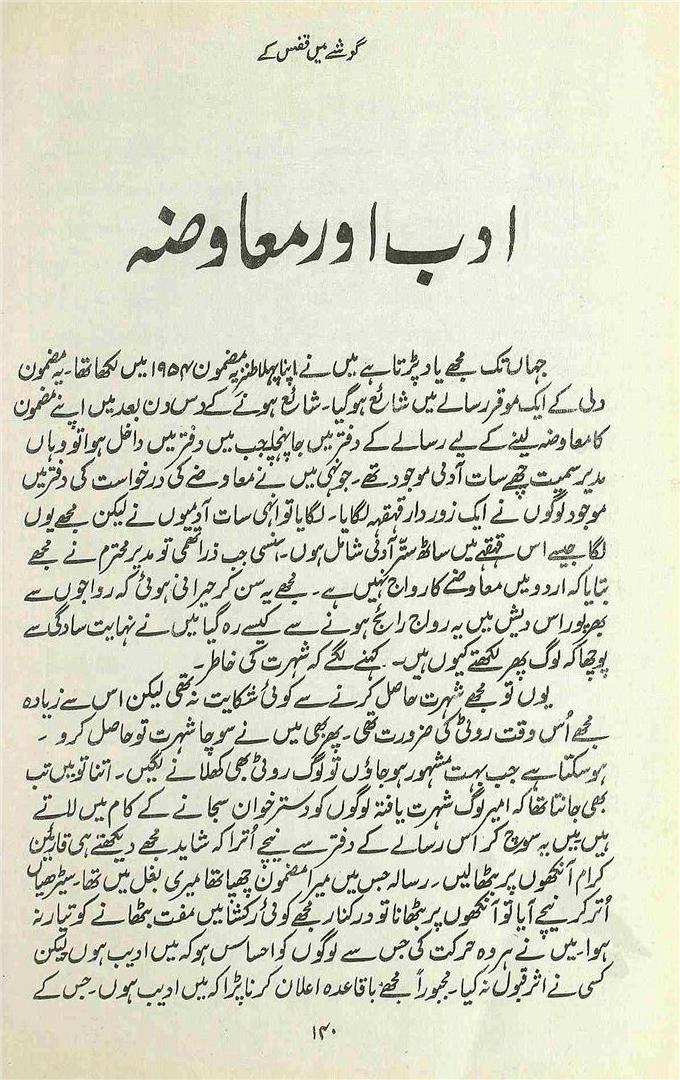 گوشے میں قفس کے
ادب اور معاوضہ
جہاں تک مجھے یاد پڑتا ہے میں نے اپنا پہلا طنزیہ مضمون ۱۹۵۴ میں لکھا تھا۔ یہ مضمون
دلی کے ایک موقر رسالے میں شائع ہوگیا۔ شائع ہونے کے دس دن بعد میں اپنے مضمون
کا معاوضہ لینے کے لیے رسالے کے دفتر میں جا پہنچا۔ جب میں دفتر میں داخل ہوا تو وہاں
مدیر سمیت چھے سات آدمی موجود تھے۔ جونہی میں نے معاوضے کی درخواست کی دفتر میں
موجود لوگوں نے ایک زوردار قہقہہ لگایا۔ لگایا تو انہی سات آدمیوں نے لیکن مجھے یوں
لگا جیسے اس قہقہے میں ساٹھ ستّر آدمی شامل ہوں۔ ہنسی جب ذرا تھمی تو مدیر محترم نے مجھے
بتایا کہ اردو میں معاوضے کا رواج نہیں ہے۔ مجھے یہ سن کر حیرانی ہوئی کہ رواجوں سے
بھرپور اس دیش میں یہ رواج رائج ہونے سے کیسے رہ گیا میں نے نہایت سادگی سے
پوچھا کہ لوگ پھر لکھتے کیوں ہیں۔ کہنے لگے کہ شہرت کی خاطر۔
یوں تو مجھے شہرت حاصل کرنے سے کوئی شکایت نہ تھی لیکن اس سے زیادہ
مجھے اُس وقت روٹی کی ضرورت تھی۔ پھر بھی میں نے سوچا شہرت تو حاصل کرو۔
ہوسکتا ہے جب بہت مشہور ہو جاؤں تو لوگ روٹی بھی کھلانے لگیں۔ اتنا تو میں تب
بھی جانتا تھا کہ امیر لوگ شہرت یافتہ لوگوں کو دسترخوان سجانے کے کام میں لاتے
ہیں میں یہ سوچ کر اس رسالے کے دفتر سے نیچے اُترا کہ شاید مجھے دیکھتے ہی قارئین
کرام آنکھوں پر بٹھا لیں۔ رسالہ جس میں میرا مضمون چھپا تھا میری بغل میں تھا۔ سیڑھیاں
اُتر کر نیچے آیا تو آنکھوں پر بٹھانا تو درکنار مجھے کوئی رکشا میں مفت بٹھانے کو تیار نہ
ہوا۔ میں نے ہر وہ حرکت کی جس سے لوگوں کو احساس ہو کہ میں ادیب ہوں لیکن
کسی نے اثر قبول نہ کیا۔ مجبوراً مجھے باقاعدہ اعلان کرنا پڑا کہ میں ادیب ہوں۔ جس کے
۱۴۰